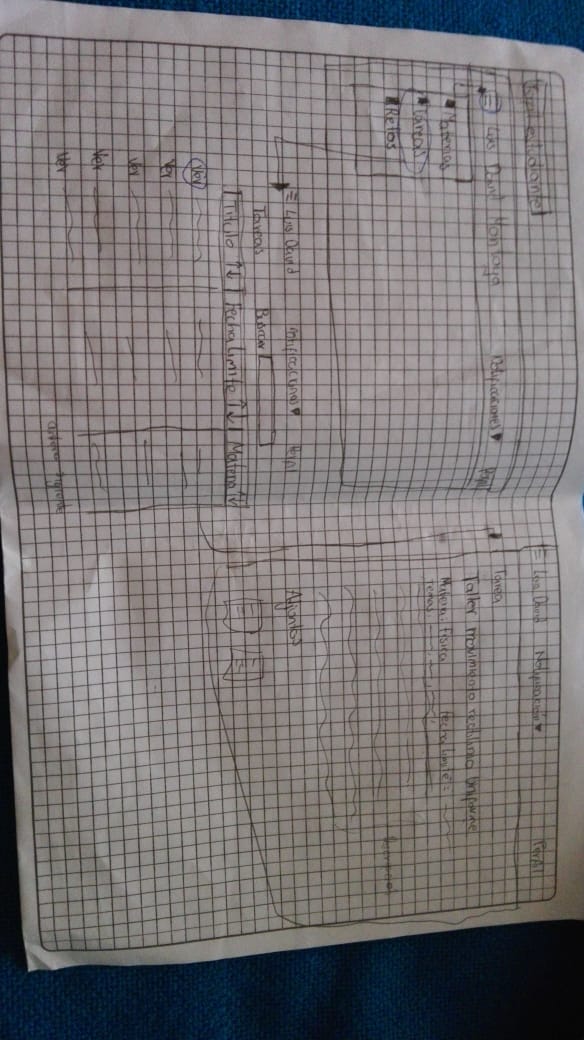 estudiante
Luis David Montoya Notificaciones Perfil
Materias
tareas
Retos
Luis David notificaciones Perfil
Tareas Buscar
Titulo ↑↓ Fecha Limite ↑↓ Materia ↑↓
Ver
Ver
Ver
Ver
Ver
anterior siguiente
Luis David Notificación Perfil
Tarea
Taller movimiento rectilineo Uniforme
Materia: física fecha limite:
temas:
Adjuntos